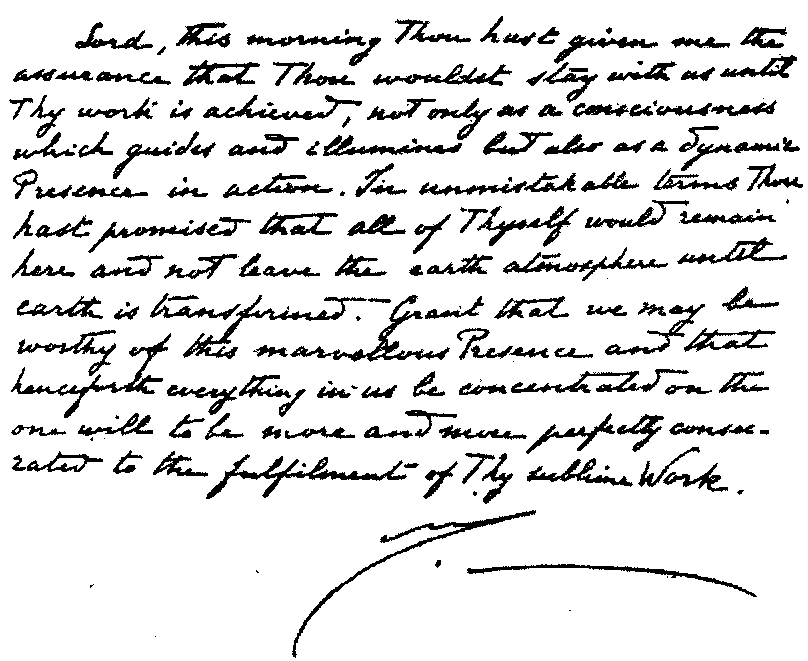 Lord, this morning Thou hast given me the
assurance that Thou wouldst stay with us until
Thy work is achieved, not only as a consciousness
which guides and illumines but also as a dynamic
Presence in action. In unmistakable terms Thou
hast promised that all of Thyself would remain
here and not leave the earth atmosphere until
earth is transformed. Grant that we may be
worthy of this marvellous Presence and that
henceforth everything in us be concentrated on the
one will to be more and more perfectly consec-
rated to the fulfilment of Thy sublime Work.